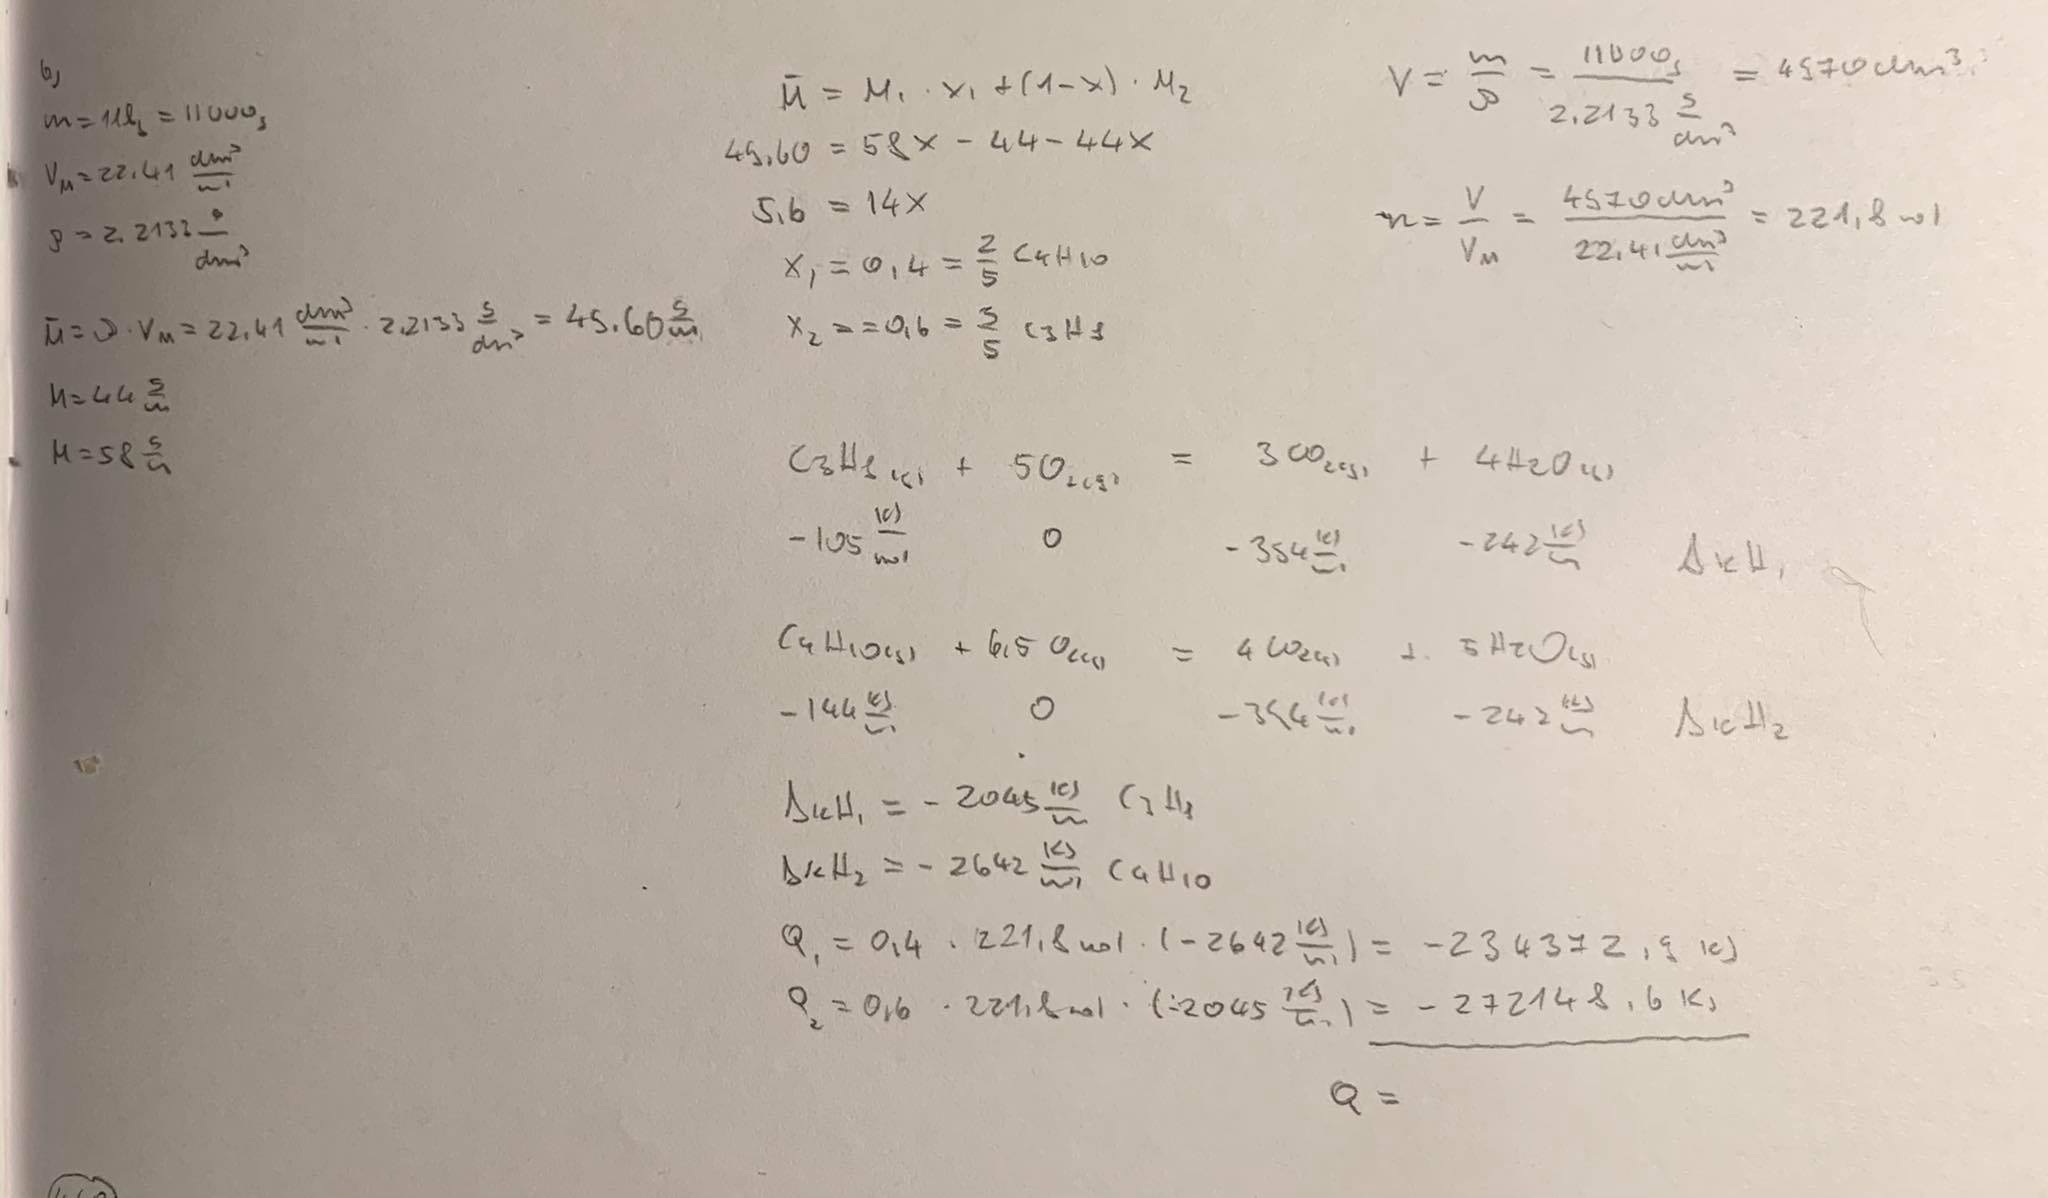 b)
m = 11kg = 11000g
VM = 22.41 dm³/mol
ρ = 2.2133 g/dm³
M̄ = ρ · VM = 22.41 dm³/mol · 2.2133 g/dm³ = 49.60 g/m
M = 44 g/m
M = 58 g/m
M̄ = M₁ · x₁ + (1-x) · M₂
49.60 = 58x - 44 - 44x
5,6 = 14x
x₁ = 0,4 = 2/5 C4H10
x₂ = = 0,6 = 3/5 C3H8
V = m/ρ = 11000g / 2.2133 g/dm³ = 4970 dm³
n = V/VM = 4970 dm³ / 22.41 dm³/m = 221,8 mol
C3H8(g) + 5O2(g) = 3CO2(g) + 4H2O(g)
-105 kJ/mol 0 -394 kJ/m -242 kJ/m ΔkH₁
C4H10(g) + 6,5O2(g) = 4CO2(g) + 5H2O(g)
-144 kJ/m 0 -394 kJ/m -242 kJ/m ΔkH₂
ΔkH₁ = - 2045 kJ/m C3H8
ΔkH₂ = - 2642 kJ/m C4H10
Q₁ = 0,4 · 221,8 mol · (-2642 kJ/m) = -234372,9 kJ
Q₂ = 0,6 · 221,8 mol · (-2045 kJ/m) = -272148,6 kJ
Q =